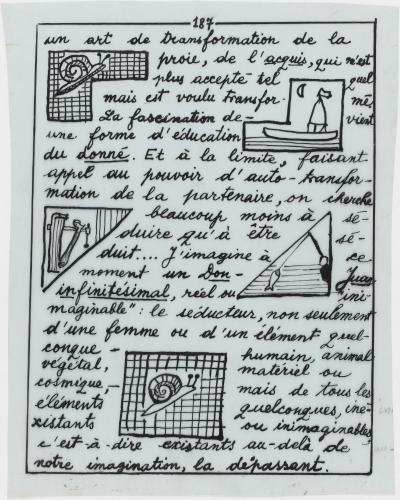 187
un art de transformation de la
proie, de l'acquis, qui n'est
plus accepté tel quel
mais est voulu transfor- mé,
La fascination de- vient
une forme d'éducation
du donné. Et à la limite, faisant
appel au pouvoir d'auto-transfor-
mation de la partenaire, on cherche
beaucoup moins à sé-
duire qu'à être sé-
duit.... J'imagine à ce
moment un Don- Juan
infinitésimal, réel ou "ini-
maginable": le séducteur, non seulement
d'une femme ou d'un élément quel-
conque – humain, animal
végétal, matériel ou
cosmique, – mais de tous les
éléments quelconques, iné-
xistants ou inimaginables
c'est-à-dire existants au-delà de
notre imagination, la dépassant.